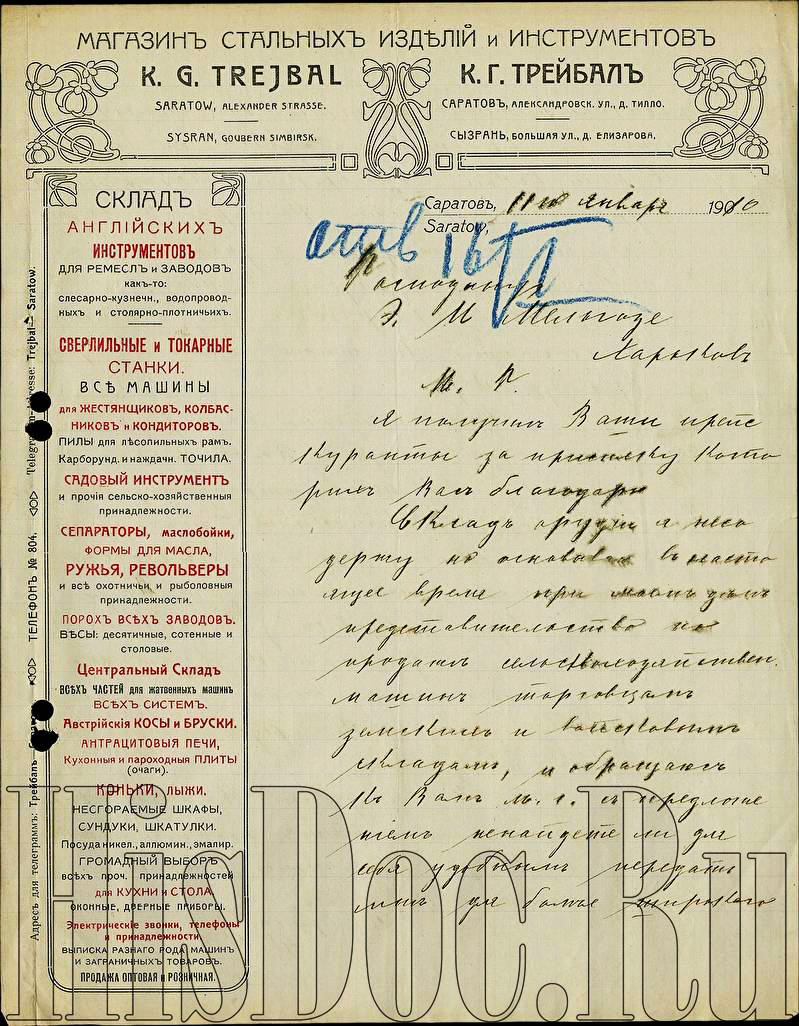 МАГАЗИНЪ СТАЛЬНЫХЪ ИЗДѢЛІЙ и ИНСТРУМЕНТОВЪ
K. G. TREJBAL
SARATOW, ALEXANDER STRASSE.
SYSRAN, GOUBERN SIMBIRSK.
К. Г. ТРЕЙБАЛЪ
САРАТОВЪ, АЛЕКСАНДРОВСК. УЛ., Д. ТИЛЛО.
СЫЗРАНЬ, БОЛЬШАЯ УЛ., Д. ЕЛИЗАРОВА.
СКЛАДЪ
АНГЛІЙСКИХЪ
ИНСТРУМЕНТОВЪ
ДЛЯ РЕМЕСЛЪ и ЗАВОДОВЪ
КАКЪ-ТО:
слесарно-кузнечн., водопровод-
ныхъ и столярно-плотничьихъ.
СВЕРЛИЛЬНЫЕ и ТОКАРНЫЕ
СТАНКИ.
ВСѢ МАШИНЫ
для ЖЕСТЯНЩИКОВЪ, КОЛБАС-
НИКОВЪ и КОНДИТОРОВЪ.
ПИЛЫ для лѣсопильныхъ рамъ.
Карборунд. и наждачн. ТОЧИЛА.
САДОВЫЙ ИНСТРУМЕНТЪ
и прочія сельско-хозяйственныя
принадлежности.
СЕПАРАТОРЫ, маслобойки,
ФОРМЫ ДЛЯ МАСЛА,
РУЖЬЯ, РЕВОЛЬВЕРЫ
и всѣ охотничьи и рыболовныя
принадлежности.
ПОРОХЪ ВСѢХЪ ЗАВОДОВЪ.
ВѢСЫ: десятичные, сотенные и
столовые.
Центральный Складъ
ВСѢХЪ ЧАСТЕЙ для жатвенныхъ машинъ
ВСѢХЪ СИСТЕМЪ.
Австрійскія КОСЫ и БРУСКИ.
АНТРАЦИТОВЫЯ ПЕЧИ,
Кухонныя и пароходныя ПЛИТЫ
(очаги).
КОНЬКИ, ЛЫЖИ.
НЕСГОРАЕМЫЕ ШКАФЫ,
СУНДУКИ, ШКАТУЛКИ.
Посуда никел., аллюмин., эмалир.
ГРОМАДНЫЙ ВЫБОРЪ
всѣхъ проч. принадлежностей
для КУХНИ и СТОЛА,
ОКОННЫЕ, ДВЕРНЫЕ ПРИБОРЫ.
Электрическіе звонки, телефоны
и принадлежности
ВЫПИСКА РАЗНАГО РОДА МАШИНЪ
И ЗАГРАНИЧНЫХЪ ТОВАРОВЪ.
ПРОДАЖА ОПТОВАЯ и РОЗНИЧНАЯ.
Адресъ для телеграммъ: Трейбалъ— ТЕЛЕФОНЪ № 804. Trejbal— Saratow.
Саратовъ, 11 го Январ 1910
Saratow,
отв 16/I
Господину
Э. И Мельгозе
Харьковъ
М. Г.
Я получилъ Ваши прейс
куранты за присылку кото
рыхъ Васъ благодарю
Складъ орудій я несо
держу но основываю въ насто
ящее время при моемъ дѣлѣ
представительство по
продажѣ сельскохозяйствен.
машинъ торговцамъ
земскимъ и войсковымъ
складамъ, и обращаюсь
къ Вамъ м. г. съ предложе
ніемъ ненайдете ли для
себя удобнымъ передать
мнѣ для болѣе широкаго
HisDoc.Ru